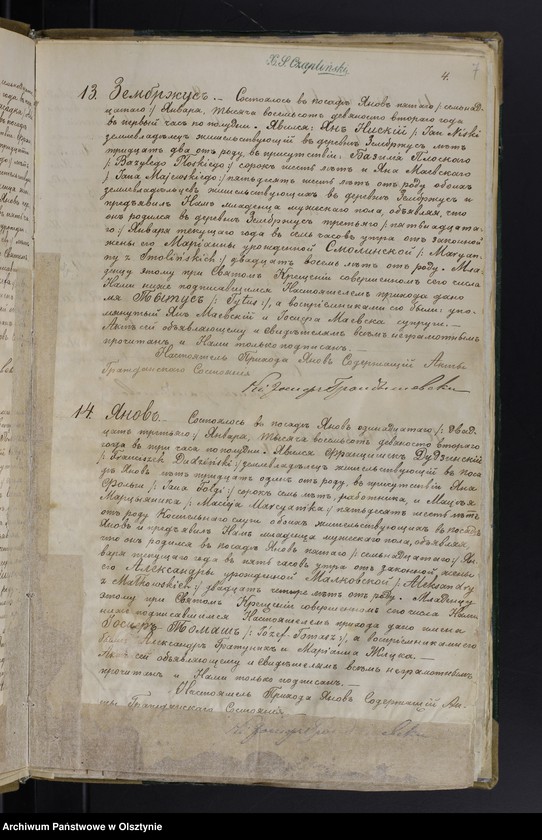 X. S. Czapliński
4.
7
13. Зембржусъ.. Состоялось въ посадѣ Яновъ пятаго /: семнад-
цатаго :/ Января, тысяча восемьсотъ девяносто втораго года
въ первый часъ по полудни. Явился: Янъ Ниский /: Jan Niski
земледѣлецъ жительствующій въ деревнѣ Зембржусъ лѣтъ
тридцать два отъ роду, въ присутствіи: Базилія Плоскаго
/: Bazylego Płoskiego :/ сорокъ шесть лѣтъ и Яна Маевскаго
/: Jana Majewskiego :/ пятьдесятъ шесть лѣтъ отъ роду обоихъ
земледѣльцевъ жительствующихъ въ деревнѣ Зембржусъ и
предъявилъ Намъ младенца мужескаго пола, объявляя, что
онъ родился въ деревнѣ Зембржусъ третьяго /: пятнадцата-
го :/ Января текущаго года въ семь часовъ утра отъ законной
жены его Маріанны урожденной Смолинской /: Maryan-
ny z Smolińskich :/ двадцать восемь лѣтъ отъ роду. Мла-
денцу этому при Святомъ Крещеніи совершенномъ сего числа
Нами ниже подписавшимся Настоятелемъ прихода дано
имя Тытусъ /: Tytus :/, а воспріемниками его были: упо-
мянутый Янъ Маевскій и Іосифа Маевска супруги. —
Актъ сей объявляющему и свидѣтелямъ всѣмъ неграмотнымъ
прочитанъ и Нами только подписанъ. —
Настоятель Прихода Яновъ Содержащій Акты
Гражданскаго Состоянія
14. Яновъ.. Состоялось въ посадѣ Яновъ одинадцатаго /: двад-
цать третьяго :/ Января, тысяча восемьсотъ девяносто втораго
года въ три часа по полудни. Явился Францишекъ Дудзенскій
/: Franciszek Dudzeński :/ земледѣлецъ жительствующій въ поса-
дѣ Яновъ лѣтъ тридцать одинъ отъ роду, въ присутствіи Яна
Фольги /: Jana Folgi :/ сорокъ семь лѣтъ, работника, и Мацѣя
пятьдесятъ шесть лѣтъ
отъ роду Костельнаго слуги обоихъ жительствующихъ въ посадѣ
Яновъ и предъявилъ Намъ младенца мужескаго пола, объявляя,
что онъ родился въ посадѣ Яновъ пятаго /: семнадцатаго :/ Ян-
варя текущаго года въ пять часовъ утра отъ законной жены
его Александры урожденной Малковской /: Aleksandry
z Małkowskich :/ двадцать четыре лѣтъ отъ роду. Младенцу
этому при Святомъ Крещеніи совершенномъ сего числа Нами
ниже подписавшимся Настоятелемъ прихода дано имена
Іосифъ Томашъ /: Jozef-Tomasz :/, а воспріемниками его
были: Александръ и Маріанна
Актъ сей объявляющему и свидѣтелямъ всѣмъ неграмотнымъ
прочитанъ и Нами только подписанъ. —
Настоятель Прихода Яновъ Содержащій Ак-
ты Гражданскаго Состоянія
Archiwum Państwowe w Olsztynie